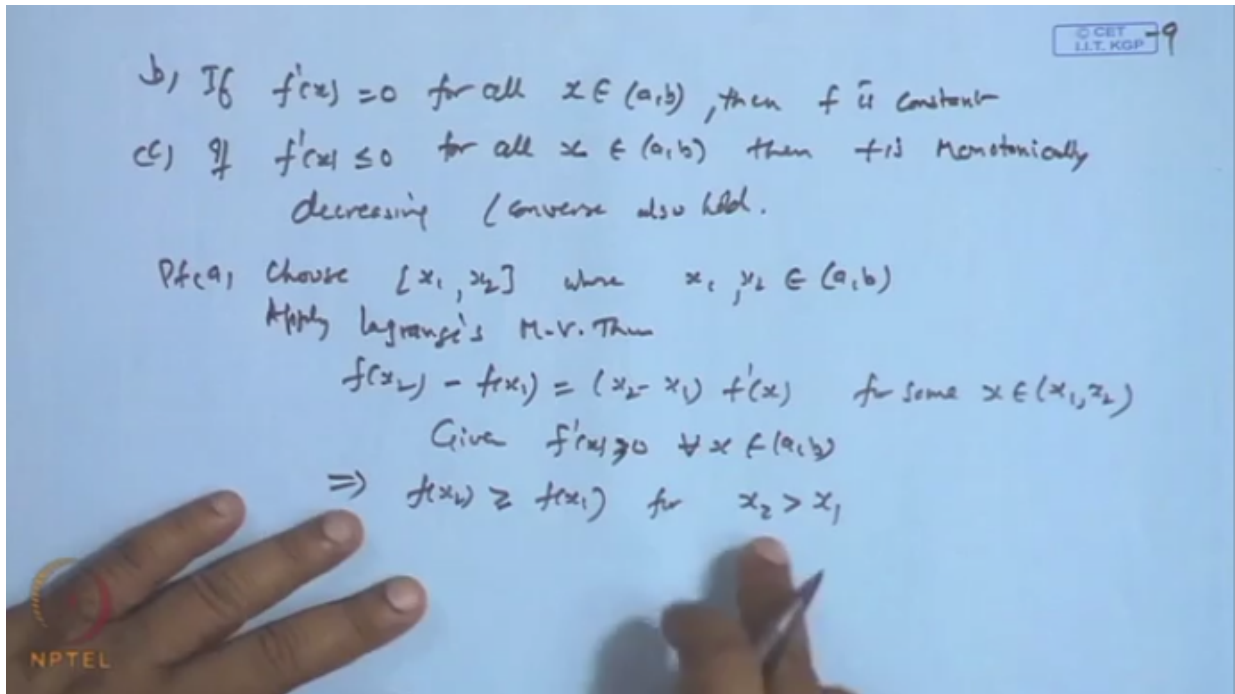 © CET
I.I.T. KGP
-9
b) If f'(x) = 0 for all x ∈ (a,b), then f is constant
(c) If f'(x) ≤ 0 for all x ∈ (a,b) then f is Monotonically
decreasing (converse also hold.
Pf (a) Choose [x₁, x₂] where x₁, x₂ ∈ (a,b)
Apply Lagrange's M.V. Thm
f(x₂) - f(x₁) = (x₂ - x₁) f'(x) for some x ∈ (x₁, x₂)
Given f'(x) ≥ 0 ∀ x ∈ (a,b)
⇒ f(x₂) ≥ f(x₁) for x₂ > x₁
NPTEL